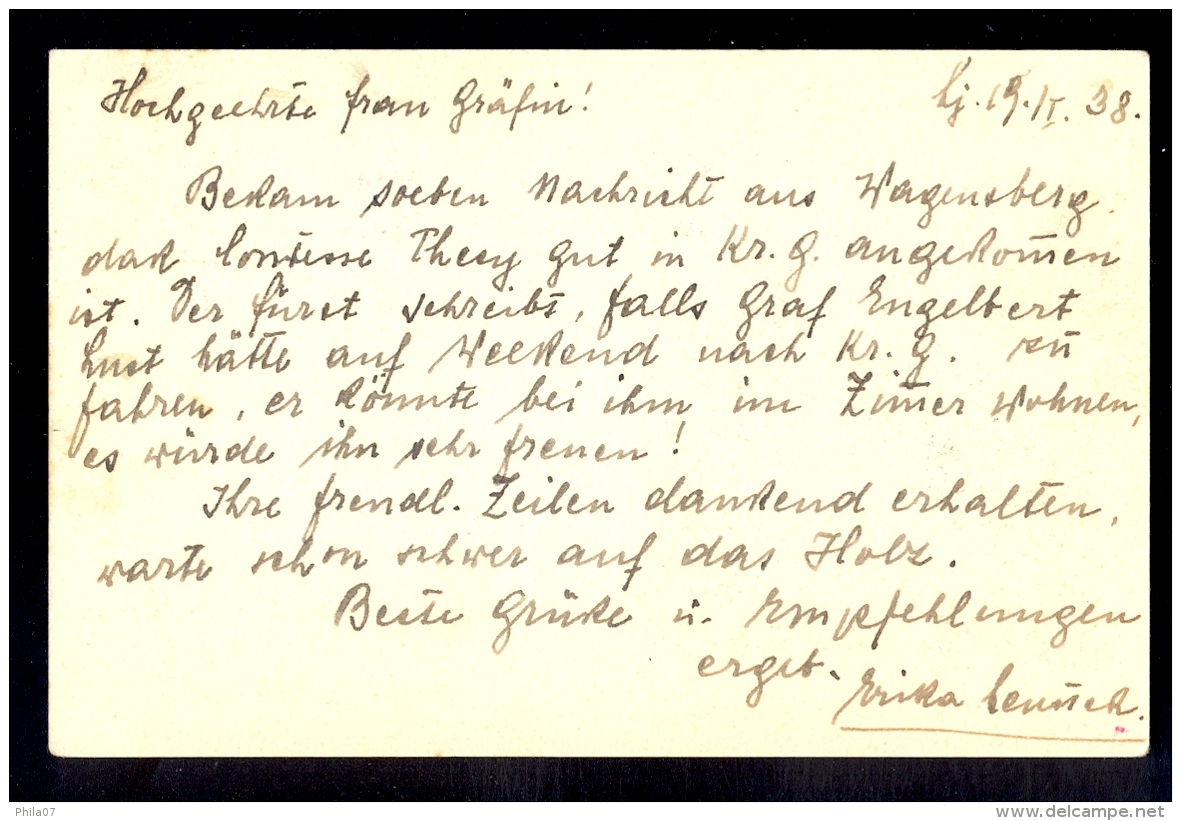 Hochgeehrte Frau Gräfin! Lj. 19. II. 38.
Bekam soeben Nachricht aus Wagensberg
daß Contesse Thesy gut in Kr. G. angekom̄en
ist. Der Fürst schreibt, falls Graf Engelbert
Lust hätte auf Weekend nach Kr. G. zu
fahren, er könnte bei ihm im Zim̄er wohnen,
es würde ihn sehr freuen!
Ihre freudl. Zeilen dankend erhalten,
warte schon schwer auf das Holz.
Beste Grüße u. Empfehlungen
ergeb.
Erika
Phila07
www.delcampe.net